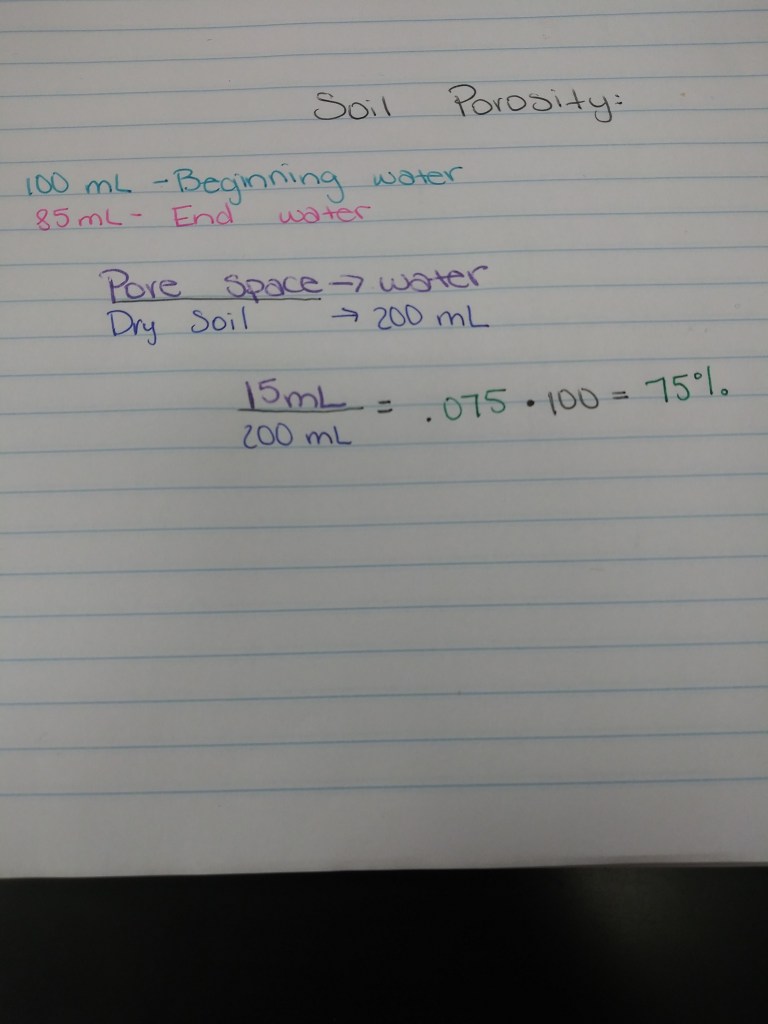 Soil Porosity:
100 mL - Beginning water
85mL - End water
Pore space → water
Dry Soil → 200 mL
15mL
200 mL
= .075 • 100 = 75%